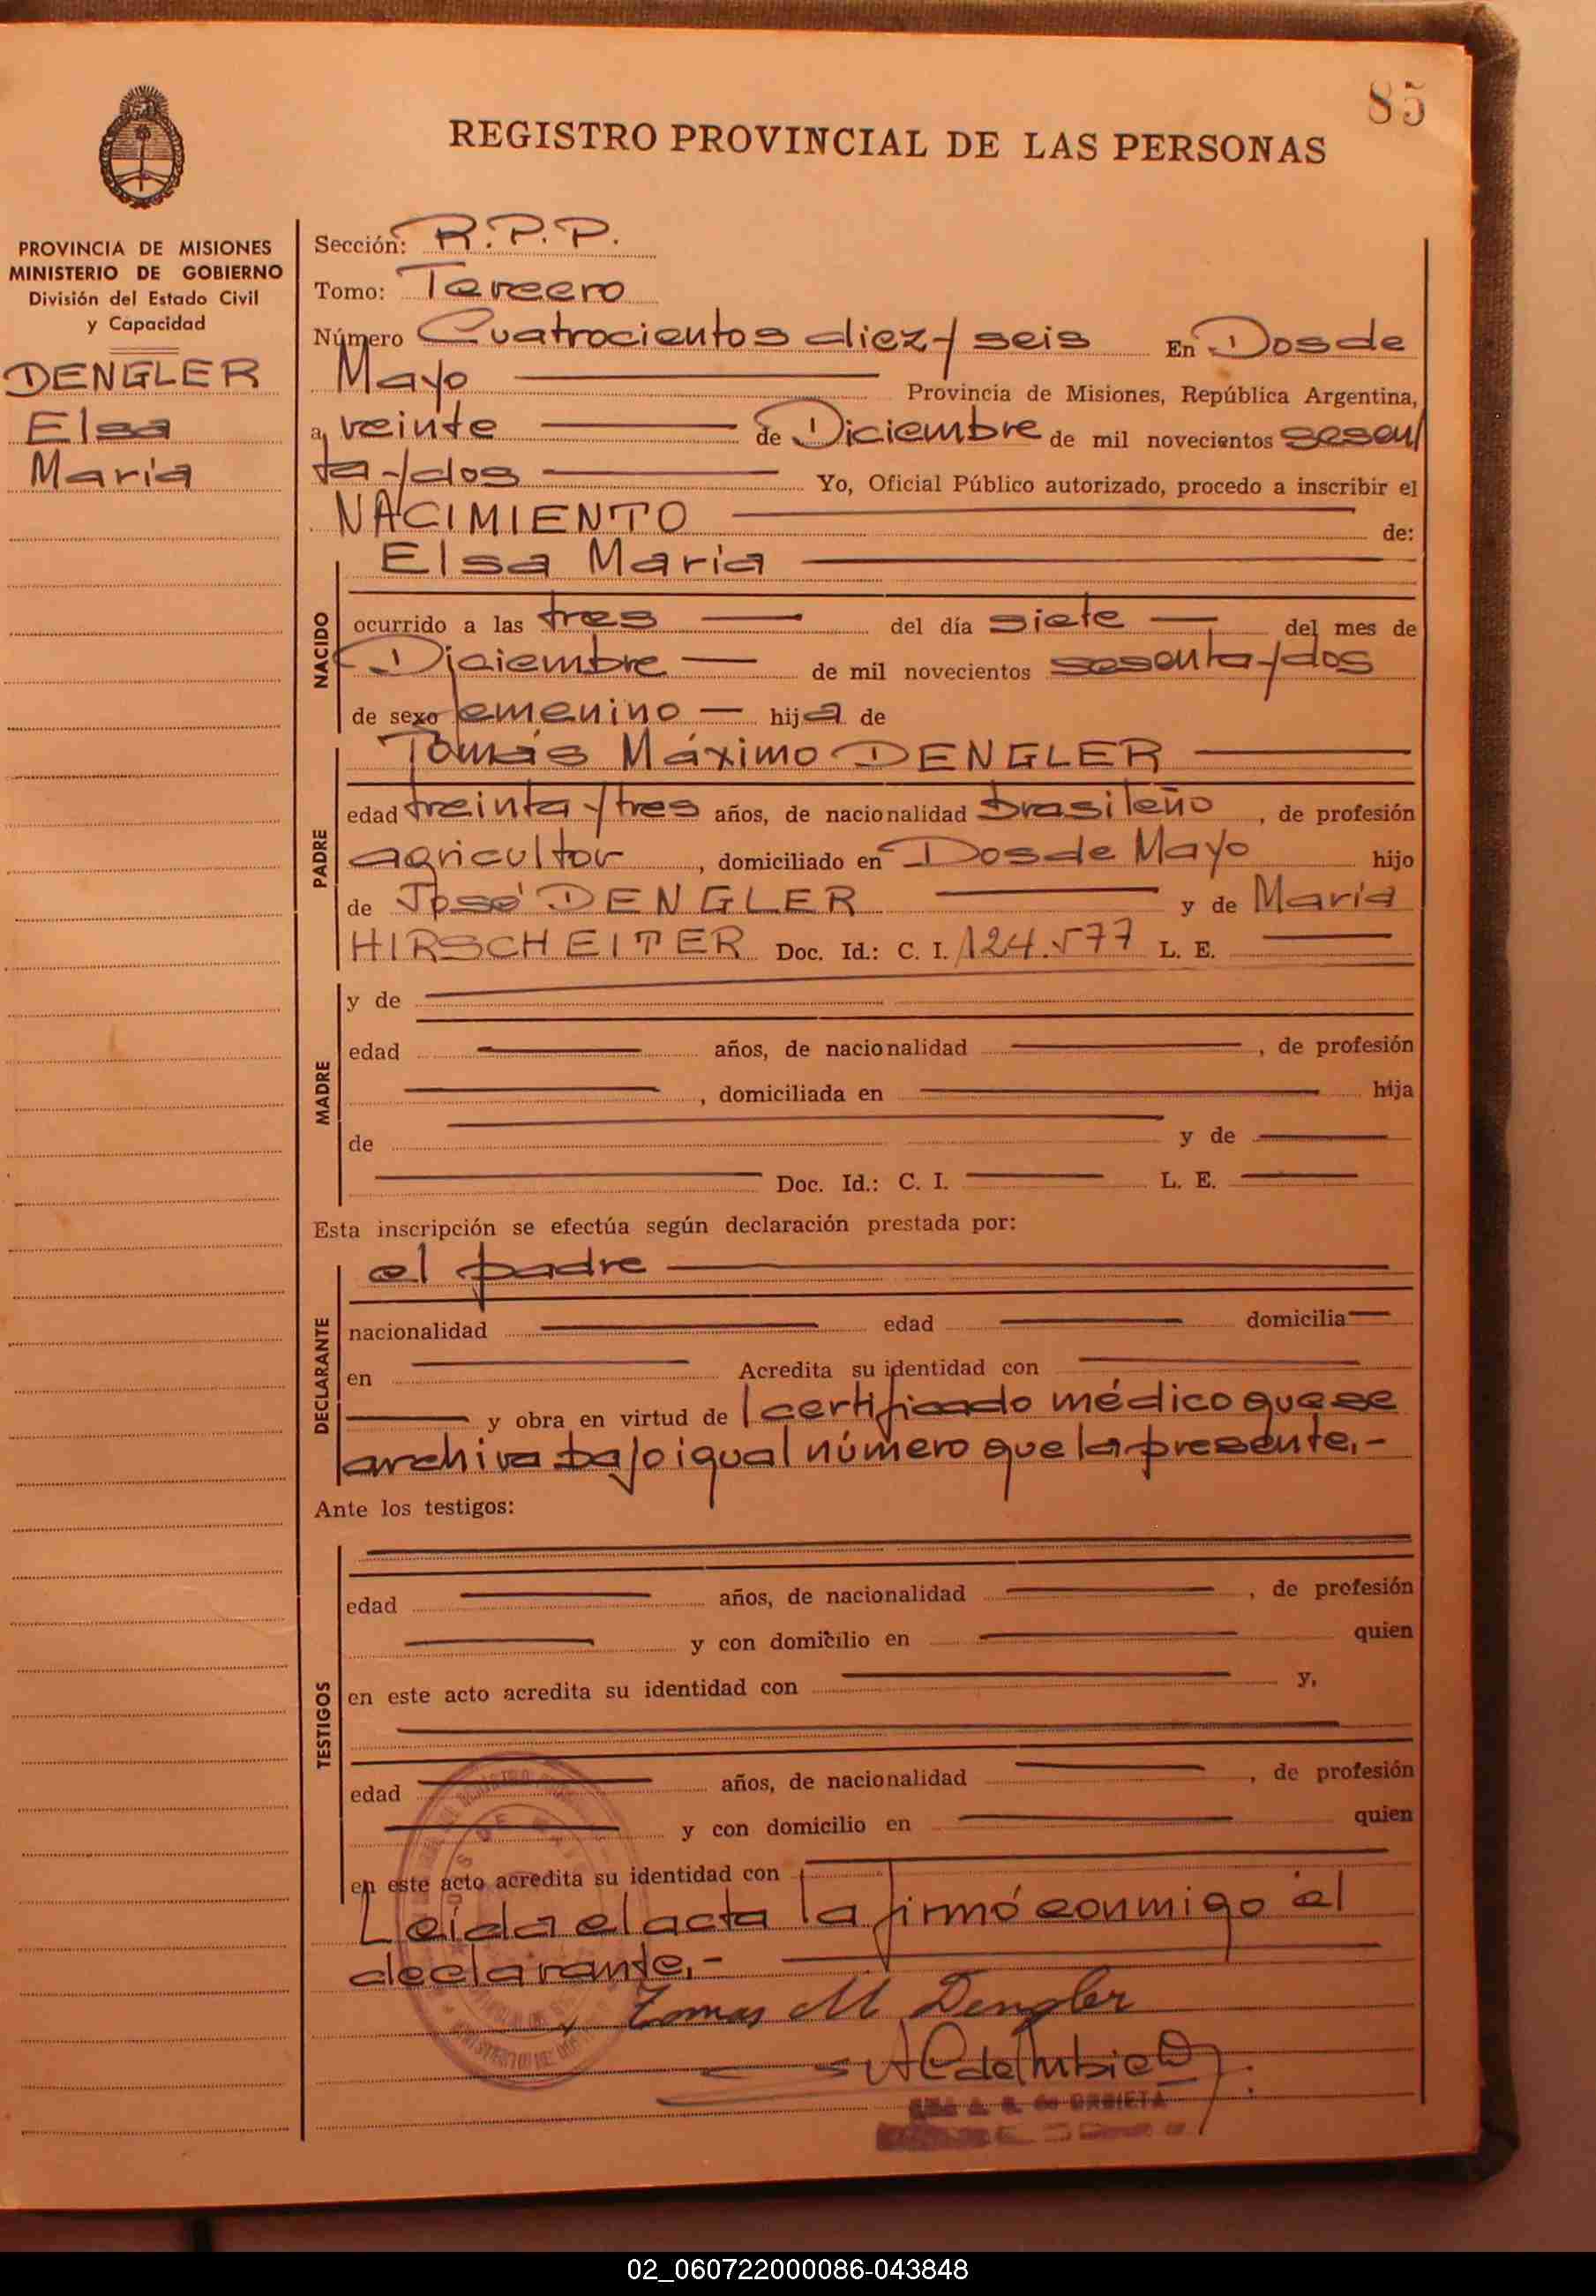 85
REGISTRO PROVINCIAL DE LAS PERSONAS
PROVINCIA DE MISIONES
MINISTERIO DE GOBIERNO
División del Estado Civil
y Capacidad
DENGLER
Elsa
María
Sección: R.P.P.
Tomo: Tercero
Número Cuatrocientos diez y seis En Dos de
Mayo Provincia de Misiones, República Argentina,
a veinte de Diciembre de mil novecientos sesen
ta y dos Yo, Oficial Público autorizado, procedo a inscribir el
NACIMIENTO de:
NACIDO
Elsa María
ocurrido a las tres del día siete del mes de
Diciembre de mil novecientos sesenta y dos
de sexo femenino hija de
PADRE
Tomás Máximo DENGLER
edad treinta y tres años, de nacionalidad brasileño, de profesión
agricultor, domiciliado en Dos de Mayo hijo
de José DENGLER y de María
HIRSCHEITER Doc. Id.: C. I. 124.577 L. E.
MADRE
y de
edad años, de nacionalidad , de profesión
, domiciliada en hija
de y de
Doc. Id.: C. I. L. E.
Esta inscripción se efectúa según declaración prestada por:
DECLARANTE
el padre
nacionalidad edad domicilia
en Acredita su identidad con
y obra en virtud de l certificado médico que se
archiva bajo igual número que la presente.-
Ante los testigos:
TESTIGOS
edad años, de nacionalidad , de profesión
y con domicilio en quien
en este acto acredita su identidad con y,
edad años, de nacionalidad , de profesión
y con domicilio en quien
en este acto acredita su identidad con
Leída el acta la firmó conmigo el
declarante.-
Tomas M Dengler
de ORBIETA
02_060722000086-043848